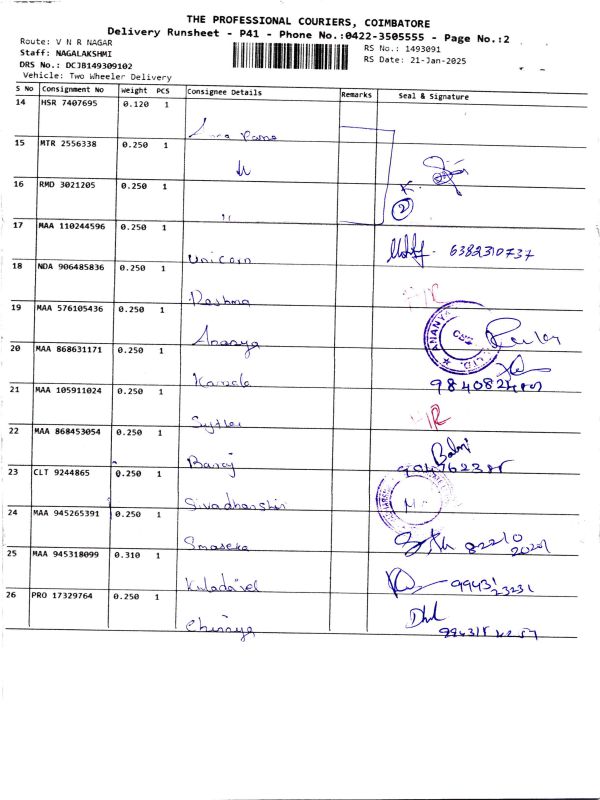 THE PROFESSIONAL COURIERS, COIMBATORE
Delivery Runsheet - P41 - Phone No.:0422-3505555 - Page No.:2
Route: V N R NAGAR
RS No.: 1493091
Staff: NAGALAKSHMI
RS Date: 21-Jan-2025
DRS No.: DCJB149309102
Vehicle: Two Wheeler Delivery
S No Consignment No Weight PCS Consignee Details Remarks Seal & Signature
14 HSR 7407695 0.120 1
15 MTR 2556338 0.250 1
16 RMD 3021205 0.250 1
2
17 MAA 110244596 0.250 1 Unicorn 6382310737
18 NDA 906485836 0.250 1 Reshma
19 MAA 576105436 0.250 1 Ananya
ANANYA
20 MAA 868631171 0.250 1 Kamala
21 MAA 105911024 0.250 1
22 MAA 868453054 0.250 1 Balaji
23 CLT 9244865 0.250 1 Sivadharshin
24 MAA 945265391 0.250 1
25 MAA 945318099 0.310 1 99431 23231
26 PRO 17329764 0.250 1